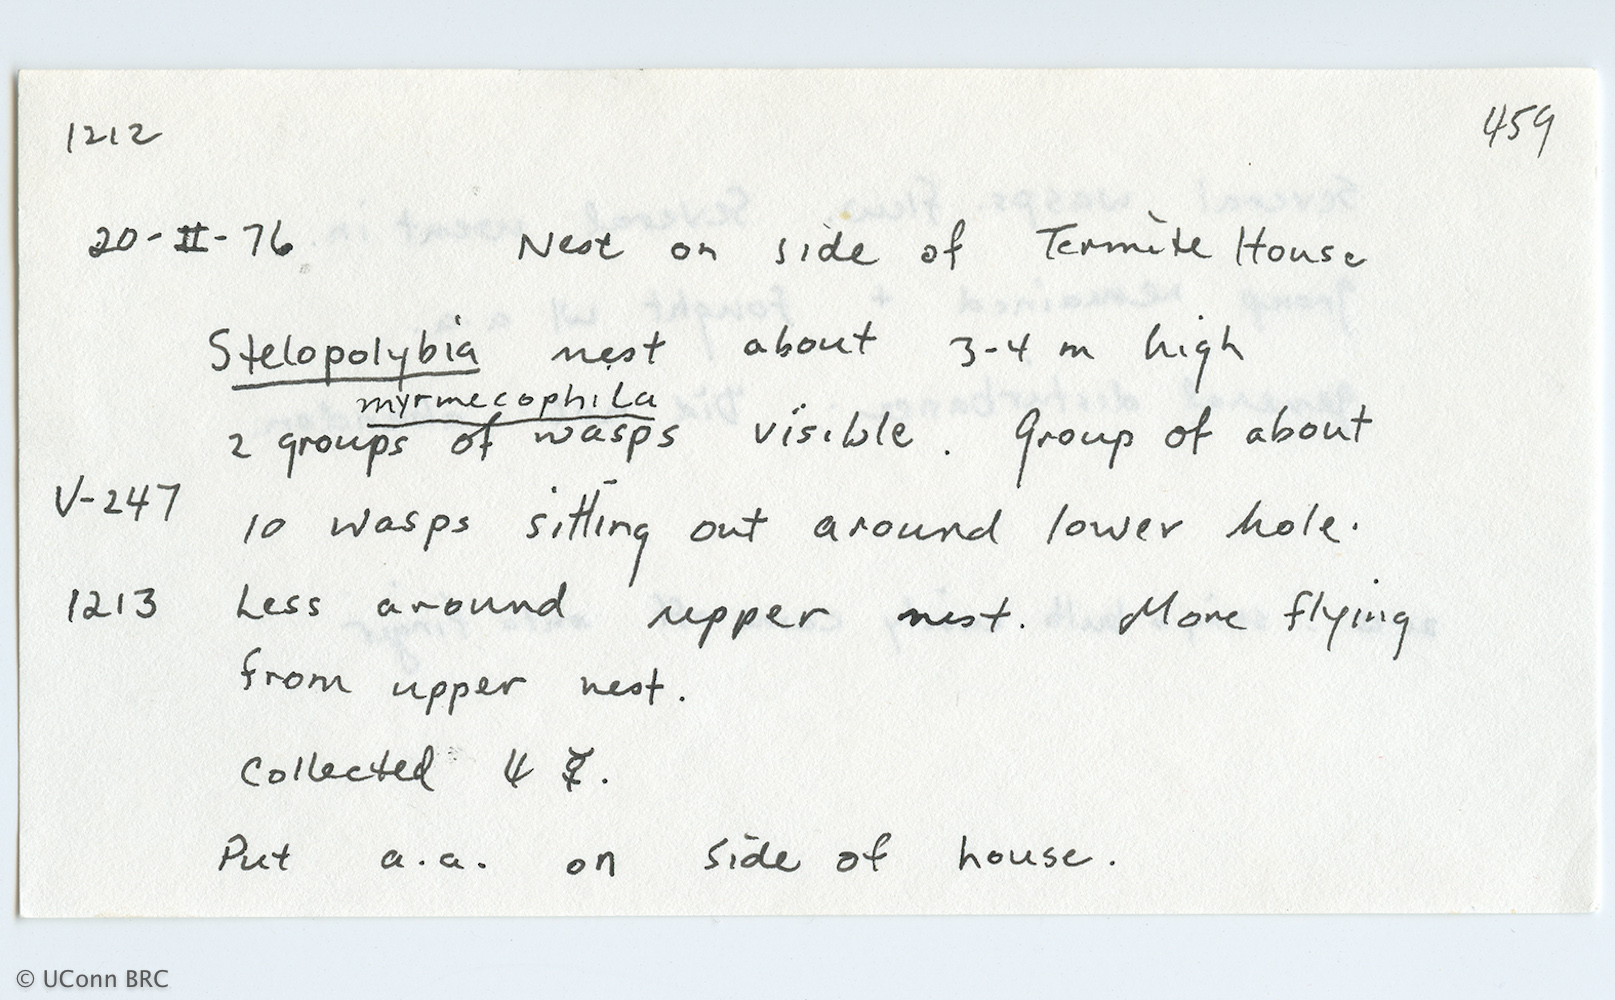 1212
459
20-II-76 Nest on side of Termite House
Stelopolybia nest about 3-4 m high
myrmecophila
2 groups of wasps visible. Group of about
V-247
10 wasps sitting out around lower hole.
1213 Less around upper nest. More flying
from upper nest.
Collected 4 ☿.
Put a.a. on side of house.
© UConn BRC